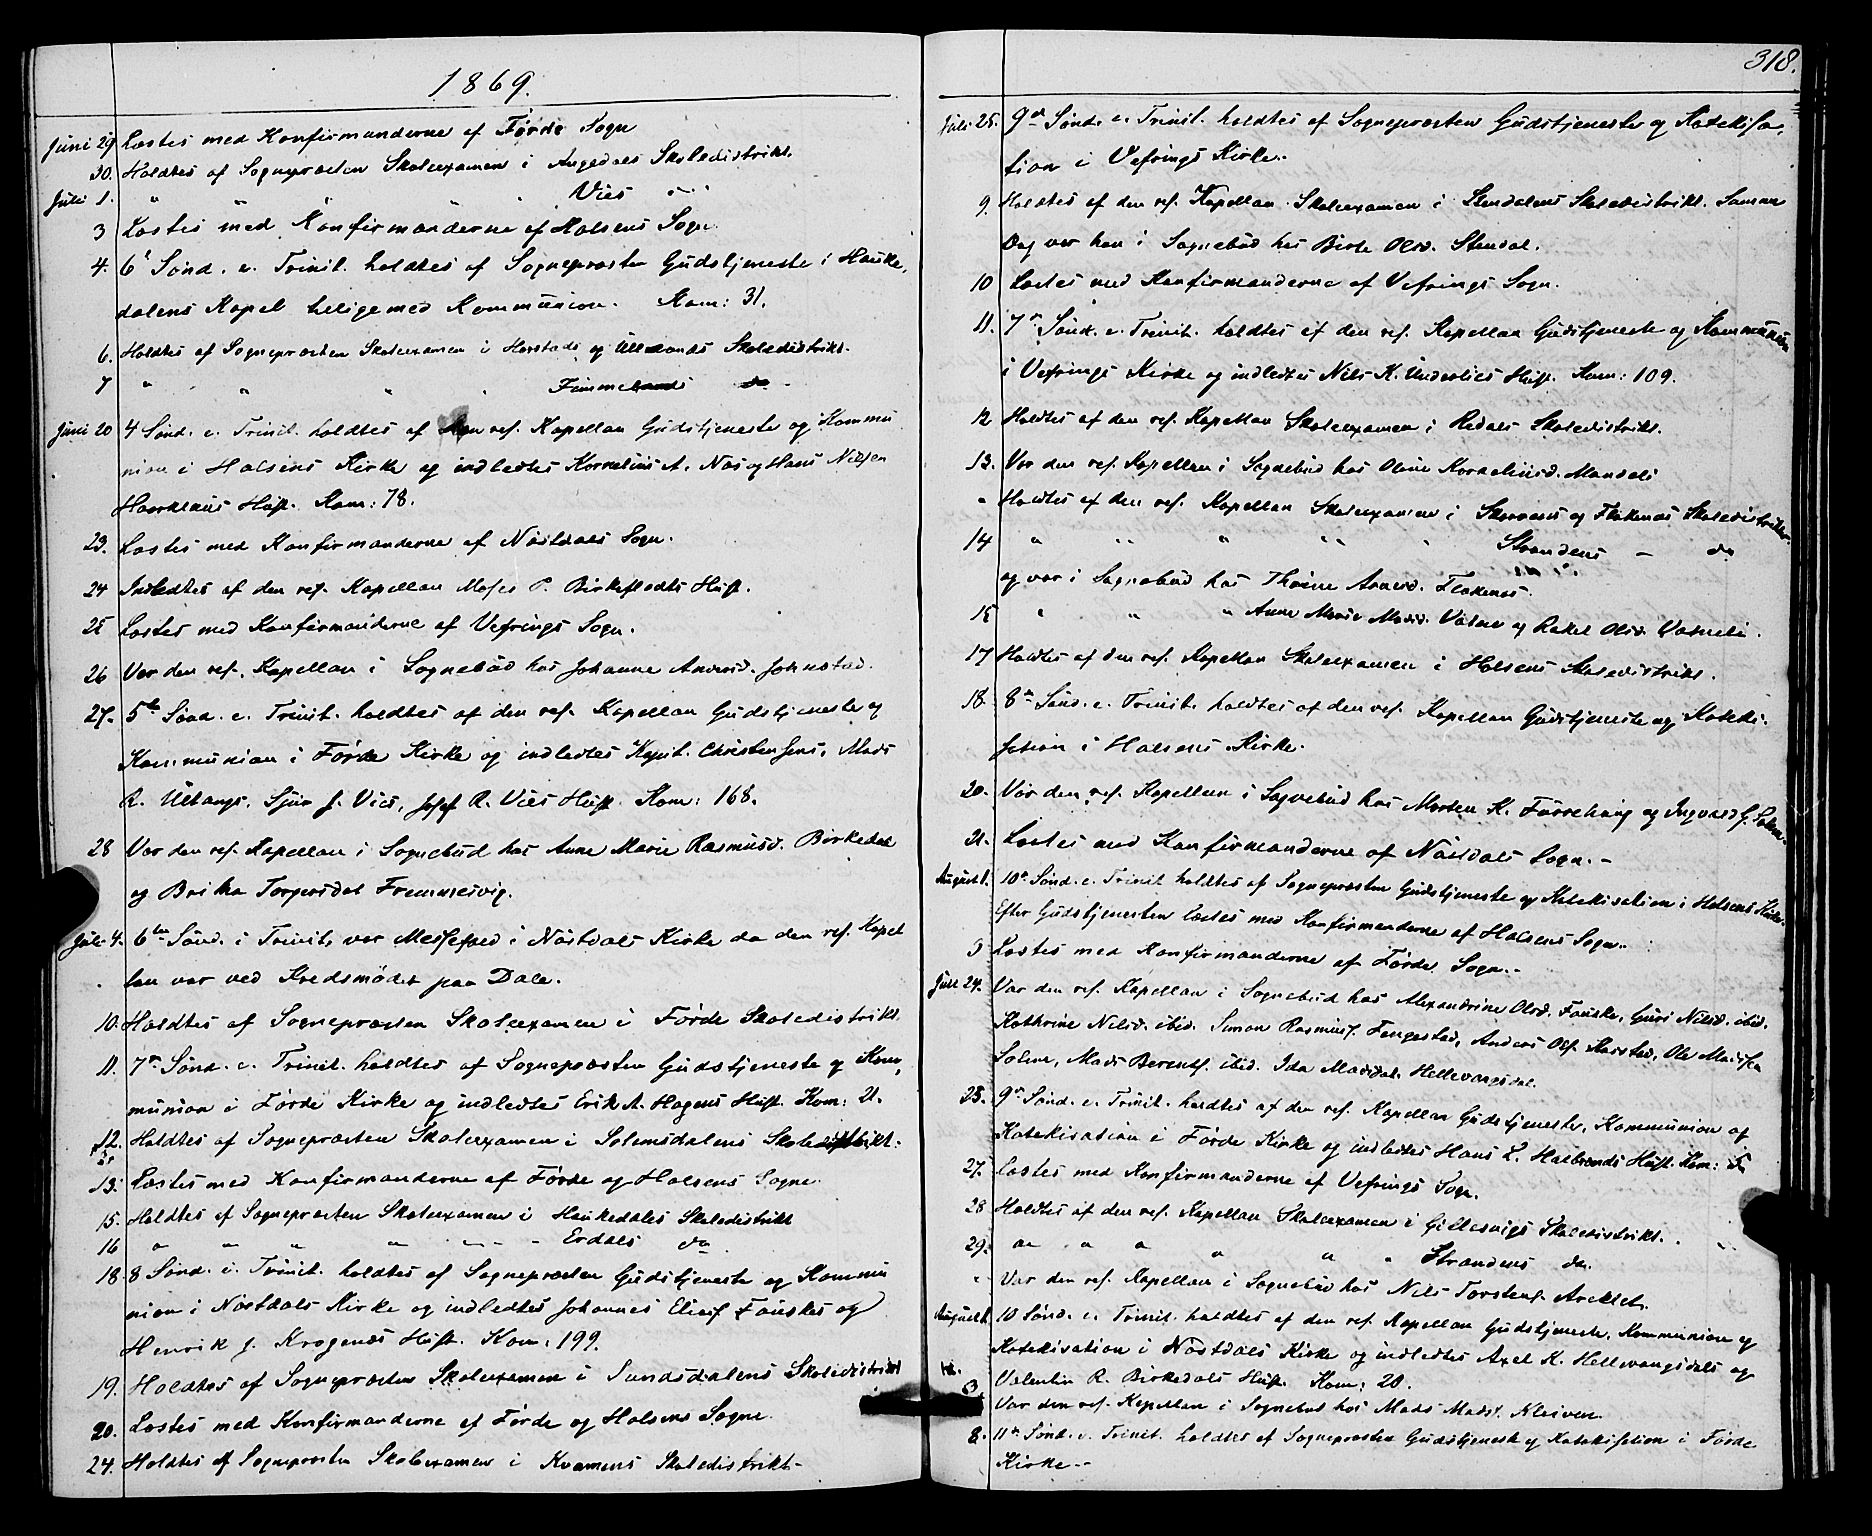 1869.
Juni 29 Læstes med Konfirmanderne af Førde Sogn
30. Holdtes af Sognepræsten Skoleexamen i Angedals Skoledistrikt.
Juli 1. " " " Vies "
3 Læstes med Konfirmanderne af Holsens Sogn
4. 6te Sønd. e. Trinit. holdtes af Sognepræsten Gudstjeneste i Hauke,
dalens Kapel tilligemed Kommunion. Kom: 31.
6. Holdtes af Sognepræsten Skoleexamen i Havstads og Ullelands Skoledistrikt.
7 " " " " Fimmelands do -
Juni 20 4 Sønd. e. Trinit. holdtes af den res. Kapellan Gudstjeneste og Kommu
nion i Holsens Kirke og indledtes Kornelius A. Næs og Hans Nilsen
Hustr. Kom: 78.
23. Læstes med Konfirmanderne af Nøstdals Sogn.
24 Indledtes af den res. Kapellan Moses P. Birkeflodts Hustr.
25 Læstes med Konfirmanderne af Vefrings Sogn.
26 Var den res. Kapellan i Sognebud hos Johanne Andersd. Johnstad.
27. 5te Sønd. e. Trinit. holdtes af den res. Kapellan Gudstjeneste og
Kommunion i Førde Kirke og indledtes Kapit. Christensens, Mads
R. Ullangs, Sjur J. Vies, Josef R. Vies Hustr. Kom: 168.
28 Var den res. Kapellan i Sognebud hos Anne Marie Rasmusd. Birkedal
og Brita Torgersdat Fremmesvig.
Juli 4. 6te Sønd. i Trinit. var Messefald i Nøstdals Kirke da den res. Kapel
lan var ved Kredsmødet paa Dale.
10. Holdtes af Sognepræsten Skoleexamen i Førde Skoledistrikt
11. 7de Sønd. e. Trinit. holdtes af Sognepræsten Gudstjeneste og Kom,
munion i Førde Kirke og indledtes Erik A. Hagens Hustr. Kom: 21.
12. Holdtes af Sognepræsten Skoleexamen i Solemsdalens Skoledistrikt.
13. Læstes med Konfirmanderne af Førde og Holsens Sogne.
15. Holdtes af Sognepræsten Skoleexamen i Haukedales Skoledistrikt
16 " " " " " Erdals do
18. 8 Sønd. e. Trinit. holdtes af Sognepræsten Gudstjeneste og Kommu
nion i Nøstdals Kirke og indledtes Johannes Elias Fauskes og
Henrik J. Krogenæs Hustr. Kom: 199.
19. Holdtes af Sognepræsten Skoleexamen i Sundsdalens Skoledistrikt
20. Læstes med Konfirmanderne af Førde og Holsens Sogne.
24. Holdtes af Sognepræsten Skoleexamen i Kvamens Skoledistrikt-
318.
Juli 25. 9de Sønd. e. Trinit. holdtes af Sognepræsten Gudstjeneste og Katekisa,
tion i Vefrings Kirke.
9. Holdtes af den res. Kapellan Skoleexamen i Stendalens Skoledistrikt. Samme
Dag var han i Sognebud hos Birte Olsd. Stendal.
10 Læstes med Konfirmanderne af Vefrings Sogn.
11. 7de Sønd. e. Trinit. holdtes af den res. Kapellan Gudstjeneste og Kommunion
i Vefrings Kirke og indledtes Nils K. Underlies Hustr. Kom: 109.
12 Holdtes af den res. Kapellan Skoleexamen i Redals Skoledistrikt.
13. Var den res. Kapellan i Sognebud hos Oline Korneliusd. Mandeli
" Holdtes af den res. Kapellan Skoleexamen i Skorvens og Flokenæs Skoledistrikter.
14 " " " " " Strandens - do
og var i Sognebud hos Thrine Flokenæs.
15 " " " Anne Marie Madsd. og Rakel Olsd. Vasneli.
17 Holdtes af den res. Kapellan Skoleexamen i Holsens Skoledistrikt.
18. 8de Sønd. e. Trinit. holdtes af den res. Kapellan Gudstjeneste og Kateki-
sation i Holsens Kirke.
20. Var den res. Kapellan i Sognebud hos Morten K. Førrehaug og Ingvald G.
21. Læstes med Konfirmanderne af Nøstdals Sogn.-
August 1. 10de Sønd. e. Trinit. holdtes af Sognepræsten Gudstjeneste og Katekisation i Holsens Kirke.
Efter Gudstjenesten læstes med Konfirmanderne af Holsens Sogn.
3 Læstes med Konfirmanderne af Førde Sogn.-
Juli 24. Var den res. Kapellan i Sognebud hos Alexandrine Olsd. Fauske, Guri Nilsd. ibid.
Kathrine Nilsd. ibid. Simon Rasmuss. Fengestad, Anders Ols. Ole
Solem, Mads Berents. ibid. Ida Madsdat. Hellevangsdal.
25. 9de Sønd. e. Trinit. holdtes af den res. Kapellan Gudstjeneste, Kommunion og
Katekisation i Førde Kirke og indledtes Hans L. Halbrends Hustr. Kom:
27. Læstes med Konfirmanderne af Vefrings Sogn.
28 Holdtes af den res. Kapellan Skoleexamen i Gillesvigs Skoledistrikt.
29. " " " " " Strandens do.
" Var den res. Kapellan i Sognebud hos Nils Torstens.
August 1. 10 Sønd. e. Trinit. holdtes af den res. Kapellan Gudstjeneste, Kommunion og
Katekisation i Nøstdals Kirke og indledtes Axel K. Hellevangsdals og
Valentin R. Birkedals Hustr. Kom: 20.
3 Var den res. Kapellan i Sognebud hos Mads Mads. Kleiven.
8. 11te Sønd. e. Trinit. holdtes af Sognepræsten Gudstjeneste og Katekisation i Førde
Kirke.-